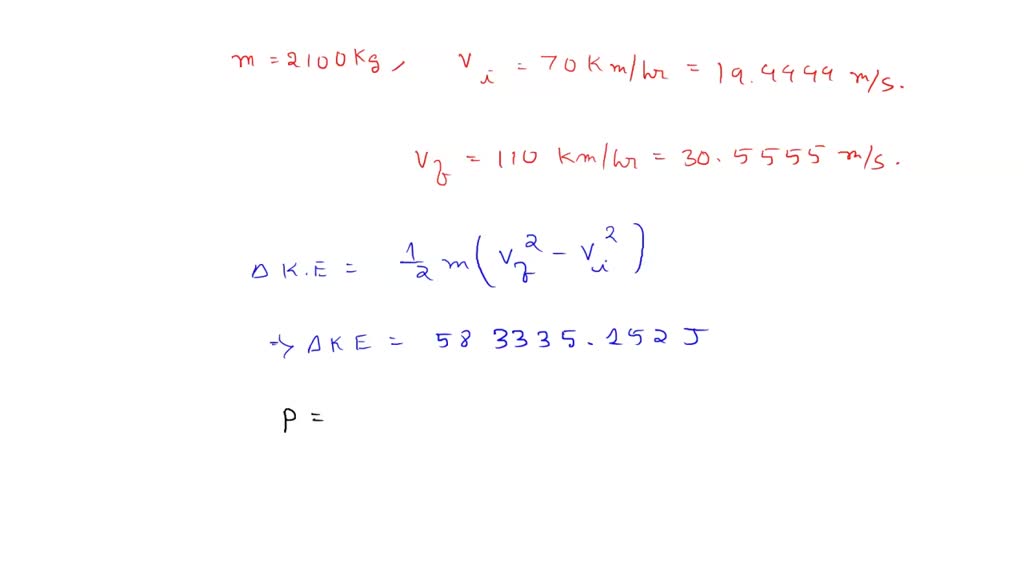 m = 2100 Kg, v i = 70 Km/hr = 19.4444 m/s.
v f = 110 km/hr = 30.5555 m/s.
Δ K.E = 1/2 m ( v f ² - v i ² )
→ Δ K E = 58 3335.252 J
P =